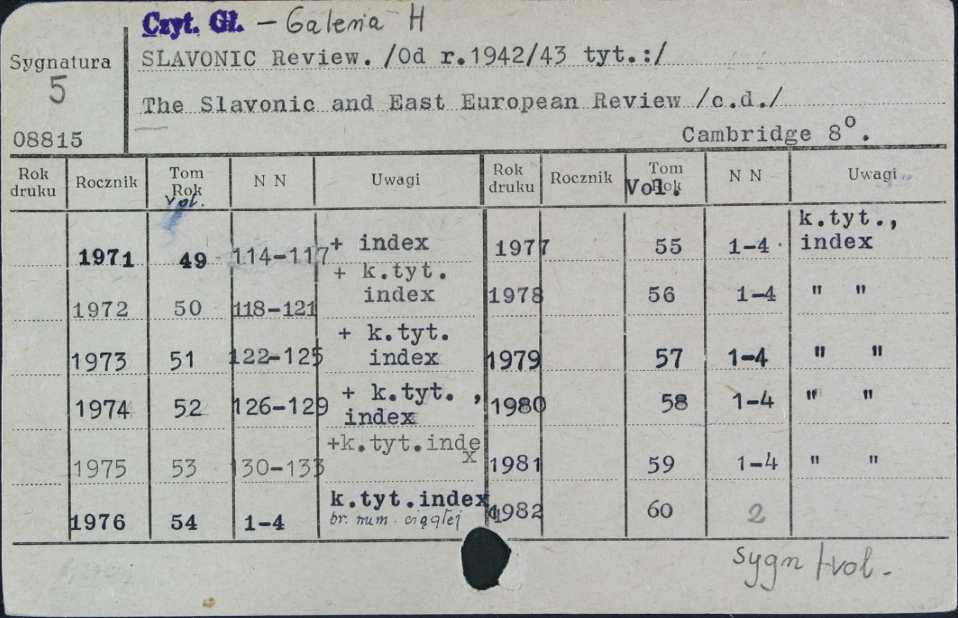 Czyt. Gł. - Galeria H
Sygnatura
5
08815
SLAVONIC Review. /Od r.1942/43 tyt.:/
The Slavonic and East European Review /c.d./
Cambridge 8º.
Rok druku Rocznik Tom Rok Vol. N N Uwagi Rok druku Rocznik Tom Rok Vol. N N Uwagi
1971 49 114-117 + index 1977 55 1-4 k.tyt., index
1972 50 118-121 + k.tyt. index 1978 56 1-4 " "
1973 51 122-125 + k.tyt. index 1979 57 1-4 " "
1974 52 126-129 + k.tyt. , index 1980 58 1-4 " "
1975 53 130-133 +k.tyt.index 1981 59 1-4 " "
1976 54 1-4 k.tyt.index br. num. ciągłej 1982 60 2
sygn + vol.